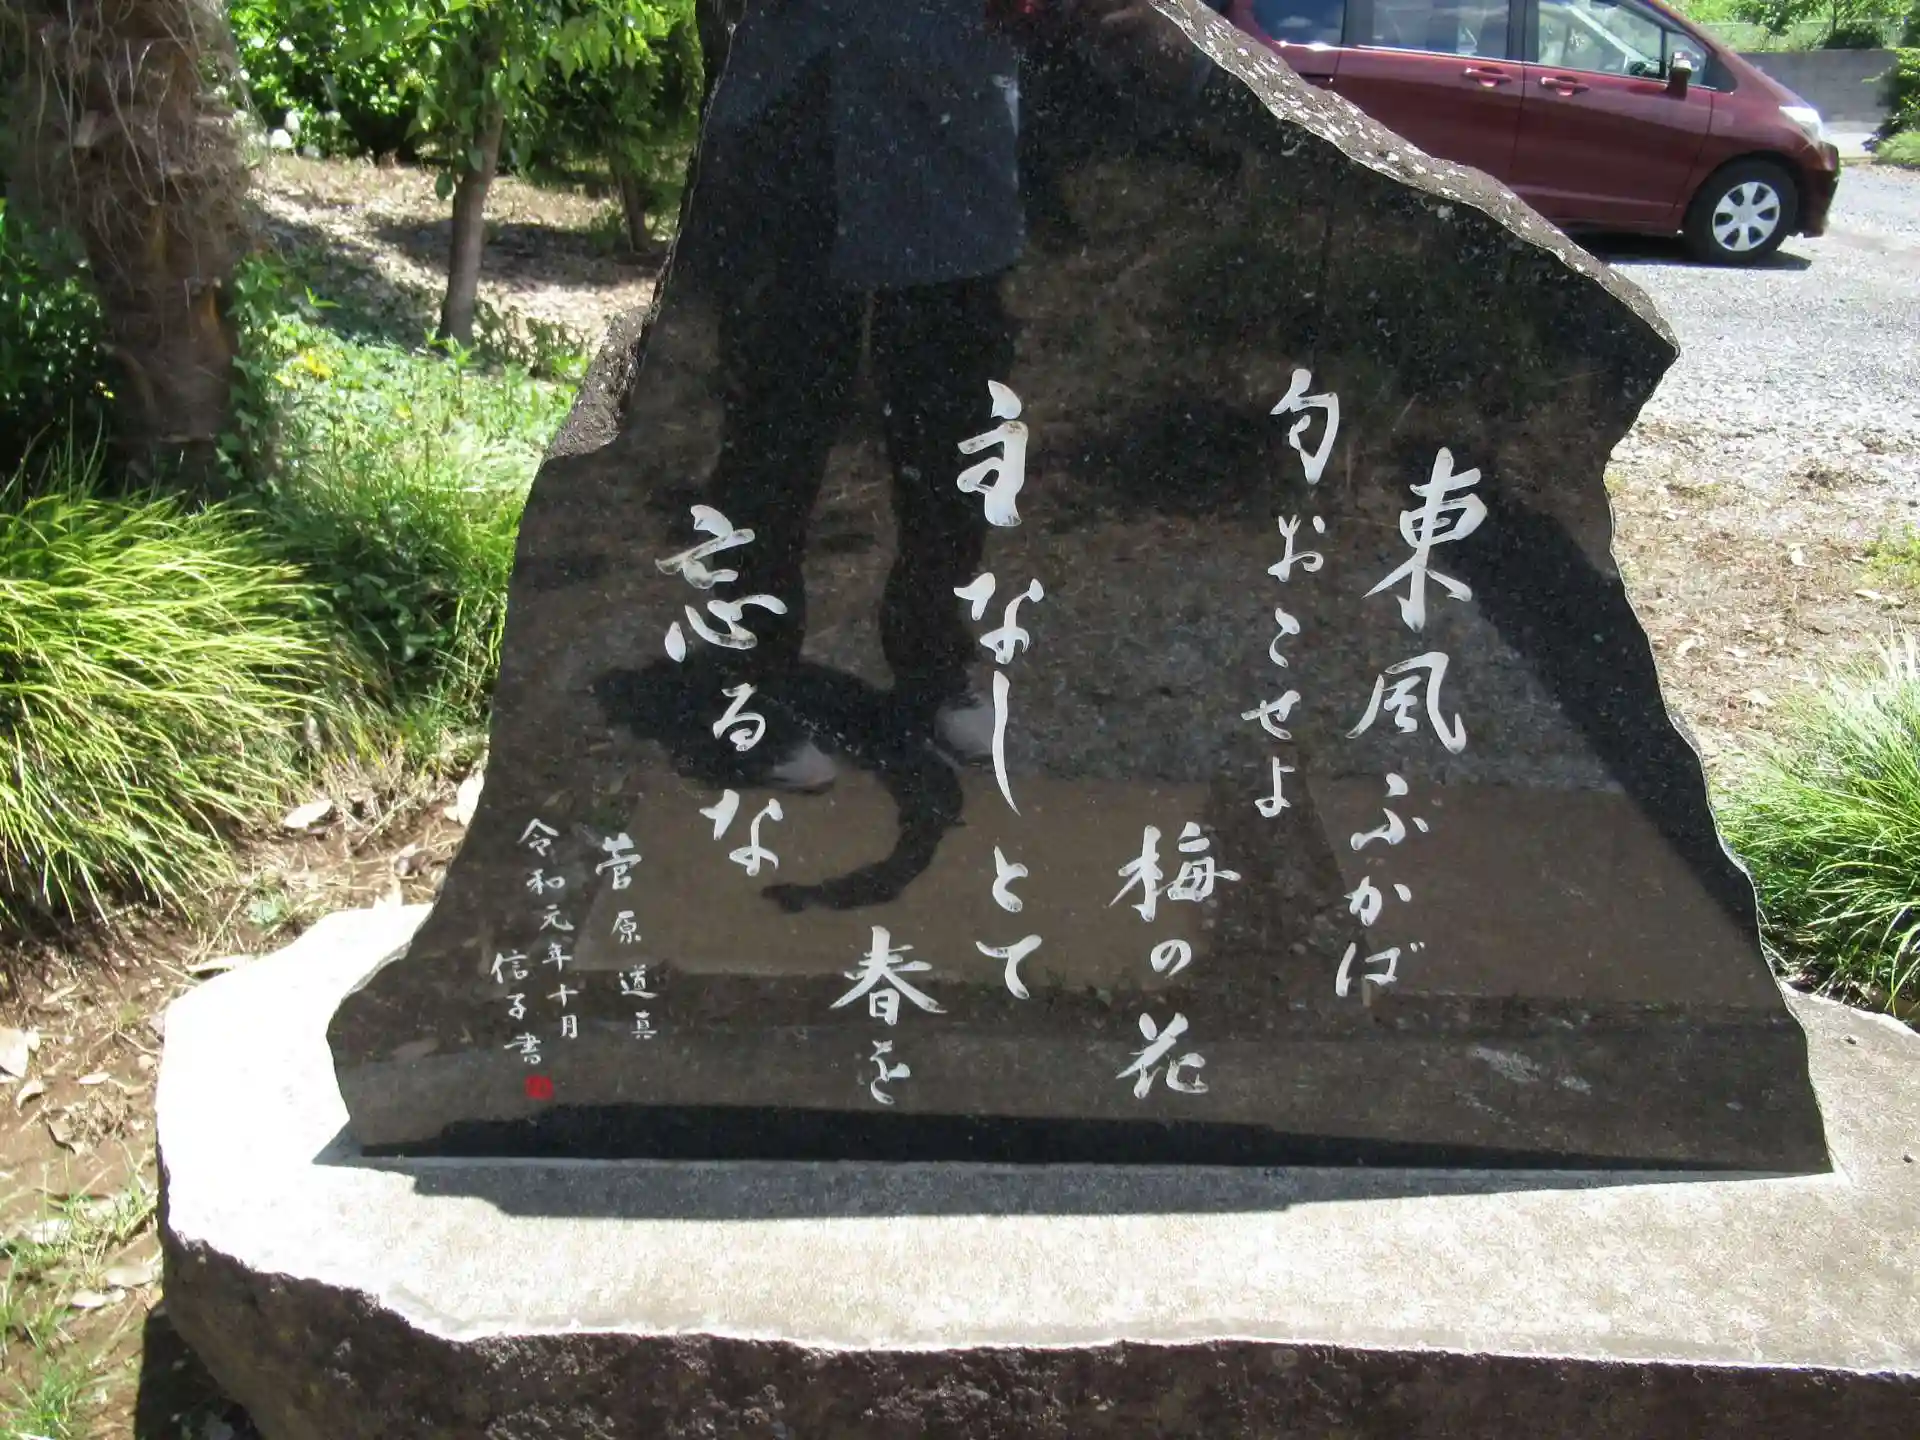 東風ふかば
匂おこせよ
梅の花
主なしとて
春を
忘るな
菅原道真
令和元年十月
信子書